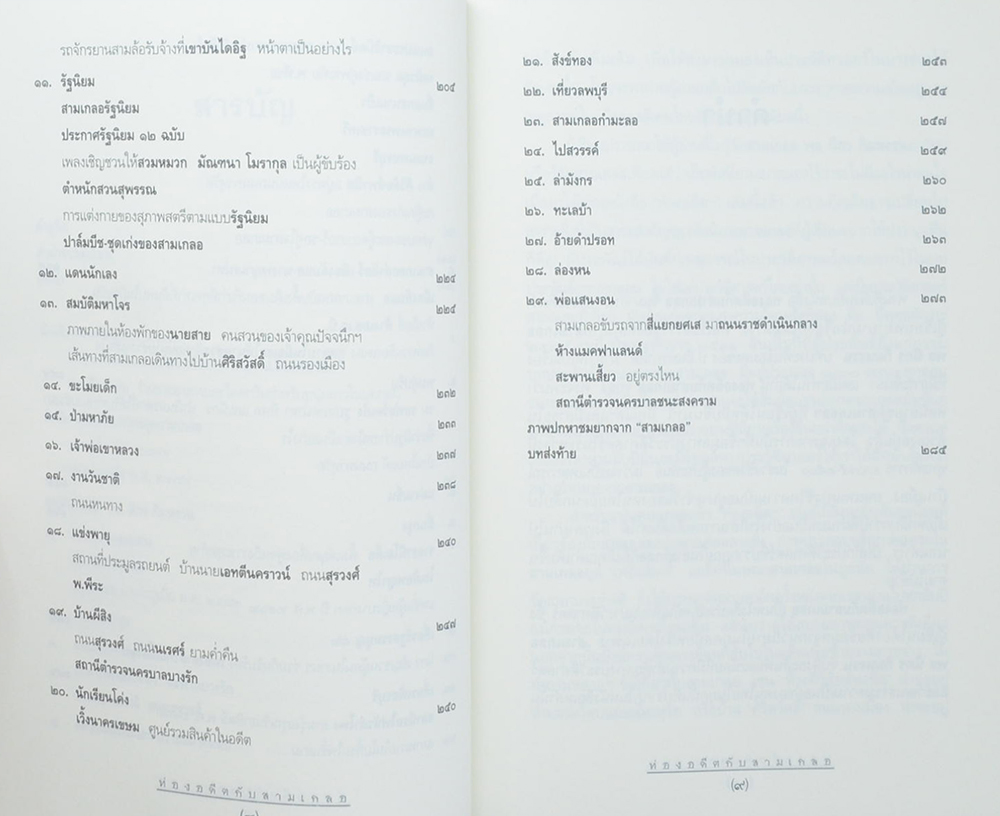 รถจักรยานสามล้อรับจ้างที่เขาบันไดอิฐ หน้าตาเป็นอย่างไร
๑๑. รัฐนิยม ๒๐๔
สามเกลอรัฐนิยม
ประกาศรัฐนิยม ๑๒ ฉบับ
เพลงเชิญชวนให้สวมหมวก มัณฑนา โมรากุล เป็นผู้ขับร้อง
ตำหนักสวนสุพรรณ
การแต่งกายของสุภาพสตรีตามแบบรัฐนิยม
ปาล์มบีช-ชุดเก่งของสามเกลอ
๑๒. แดนนักเลง ๒๒๔
๑๓. สมบัติมหาโจร ๒๒๕
ภาพภายในห้องพักของนายสาย คนสวนของเจ้าคุณปัจจนึกฯ
เส้นทางที่สามเกลอเดินทางไปบ้านศิริสวัสดิ์ ถนนรองเมือง
๑๔. ขะโมยเด็ก ๒๓๒
๑๕. ป่ามหาภัย ๒๓๓
๑๖. เจ้าพ่อเขาหลวง ๒๓๗
๑๗. งานวันชาติ ๒๓๘
ถนนหนทาง
๑๘. แข่งพายุ ๒๔๐
สถานที่ประมูลรถยนต์ บ้านนายเอทตีนคราวน์ ถนนสุรวงศ์
พ.พีระ
๑๙. บ้านผีสิง ๒๔๗
ถนนสุรวงศ์ ถนนนเรศร์ ยามค่ำคืน
สถานีตำรวจนครบาลบางรัก
๒๐. นักเรียนโค่ง ๒๕๐
เวิ้งนาครเขษม ศูนย์รวมสินค้าในอดีต
ท่องอดีตกับสามเกลอ
๒๑. สังข์ทอง ๒๕๓
๒๒. เที่ยวลพบุรี ๒๕๔
๒๓. สามเกลอกำมะลอ ๒๕๗
๒๔. ไปสวรรค์ ๒๕๙
๒๕. ล่ามังกร ๒๖๐
๒๖. ทะเลบ้า ๒๖๒
๒๗. อ้ายดำปรอท ๒๖๓
๒๘. ล่องหน ๒๗๒
๒๙. พ่อแสนงอน ๒๗๓
สามเกลอขับรถจากสี่แยกยศเส มาถนนราชดำเนินกลาง
ห้างแมคฟาแลนด์
สะพานเสี้ยว อยู่ตรงไหน
สถานีตำรวจนครบาลชนะสงคราม
ภาพปกหาชมยากจาก “สามเกลอ”
บทส่งท้าย ๒๘๕
ท่องอดีตกับสามเกลอ
(๙)